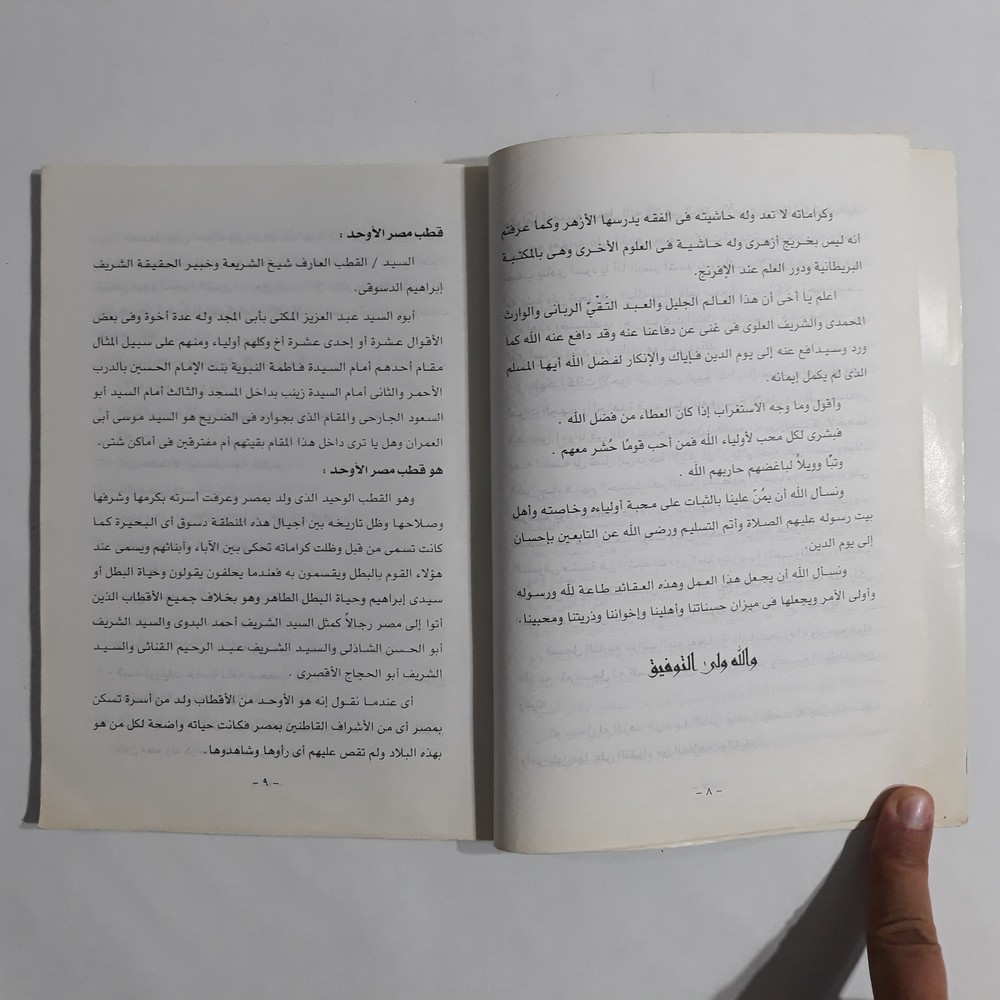 وكراماته لا تعد وله حاشيته فى الفقه يدرسها الأزهر وكما عرفتم
أنه ليس بخريج أزهرى وله حاشية فى العلوم الأخرى وهى بالمكتبة
البريطانية ودور العلم عند الإفرنج.
اعلم يا أخى أن هذا العالم الجليل والعبد التَقْيّ الربانى والوارث
المحمدى والشريف العلوى فى غنى عن دفاعنا عنه وقد دافع عنه الله كما
ورد وسيدافع عنه إلى يوم الدين فإياك والإنكار لفضل الله أيها المسلم
الذى لم يكمل إيمانه.
وأقول وما وجه الاستغراب إذا كان العطاء من فضل الله .
فبشرى لكل محب لأولياء الله فمن أحب قومًا حُشر معهم .
وتبًا وويلاً لباغضهم حاربهم الله .
ونسأل الله أن يمُنّ علينا بالثبات على محبة أولياءه وخاصته وأهل
بيت رسوله عليهم الصلاة وأتم التسليم ورضى الله عن التابعين بإحسان
إلى يوم الدين.
ونسأل الله أن يجعل هذا العمل وهذه العقائد طاعة لله ورسوله
وأولى الأمر ويجعلها فى ميزان حسناتنا وأهلينا وإخواننا وذريتنا ومحبينا.
والله ولى التوفيق
- ٨ -
قطب مصر الأوحد :
السيد / القطب العارف شيخ الشريعة وخبير الحقيقة الشريف
إبراهيم الدسوقى.
أبوه السيد عبد العزيز المكنى بأبى المجد وله عدة أخوة وفى بعض
الأقوال عشرة أو إحدى عشرة أخ وكلهم أولياء ومنهم على سبيل المثال
مقام أحدهم أمام السيدة فاطمة النبوية بنت الإمام الحسين بالدرب
الأحمر والثانى أمام السيدة زينب بداخل المسجد والثالث أمام السيد أبو
السعود الجارحى والمقام الذى بجواره فى الضريح هو السيد موسى أبى
العمران وهل يا ترى داخل هذا المقام بقيتهم أم مفترقين فى أماكن شتى.
هو قطب مصر الأوحد :
وهو القطب الوحيد الذى ولد بمصر وعرفت أسرته بكرمها وشرفها
وصلاحها وظل تاريخه بين أجيال هذه المنطقة دسوق أى البحيرة كما
كانت تسمى من قبل وظلت كراماته تحكى بين الآباء وأبنائهم ويسمى عند
هؤلاء القوم بالبطل ويقسمون به فعندما يحلفون يقولون وحياة البطل أو
سيدى إبراهيم وحياة البطل الطاهر وهو بخلاف جميع الأقطاب الذين
أتوا إلى مصر رجالاً كمثل السيد الشريف أحمد البدوى والسيد الشريف
أبو الحسن الشاذلى والسيد الشريف عبد الرحيم القنائى والسيد
الشريف أبو الحجاج الأقصرى .
أى عندما نقول إنه هو الأوحد من الأقطاب ولد من أسرة تسكن
بمصر أى من الأشراف القاطنين بمصر فكانت حياته واضحة لكل من هو
بهذه البلاد ولم تقص عليهم أى رأوها وشاهدوها.
- ٩ -